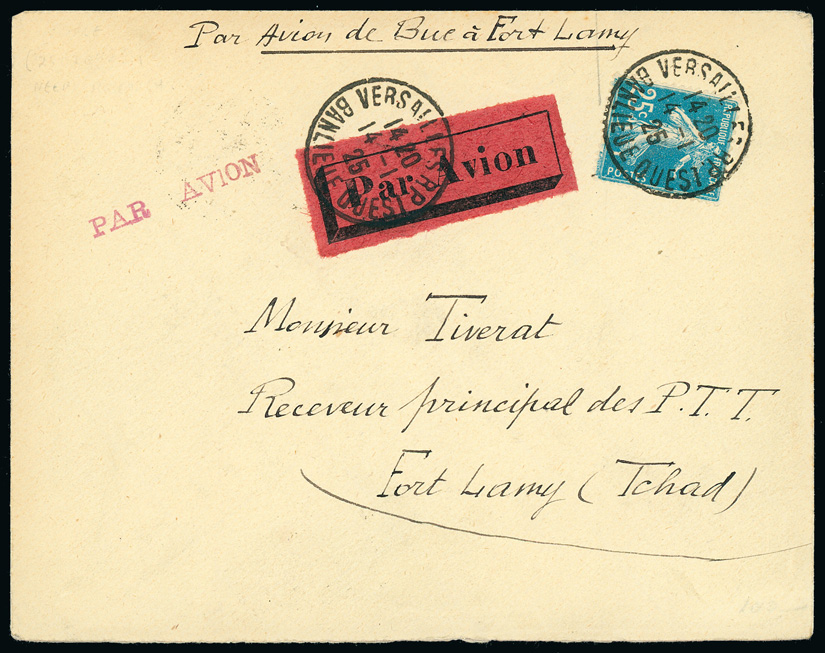 Par Avion de Buc à Fort Lamy
PAR AVION
Par Avion
VERSAILLES RP
14 20
14 -1
25
BANLIEUE OUEST
25c
VERSAILLES RP
14 20
14 -1
25
BANLIEUE OUEST
Monsieur Tiverat
Receveur principal des P.T.T.
Fort Lamy (Tchad)